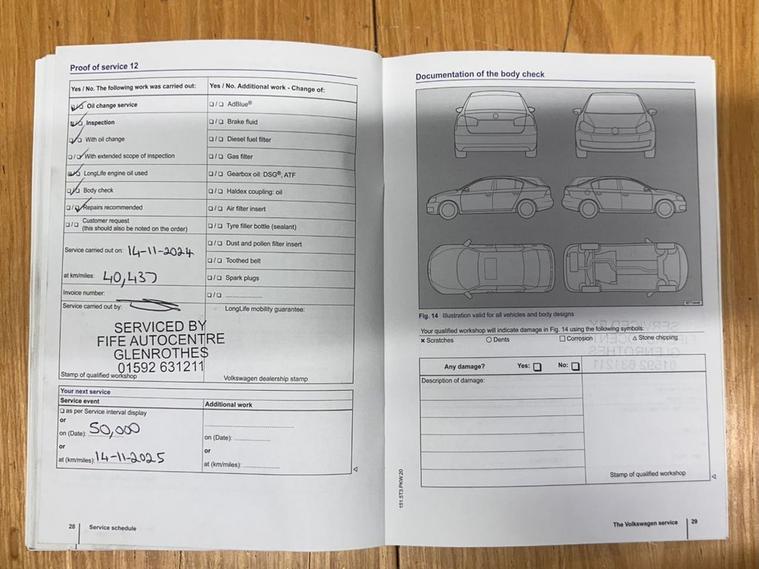 Proof of service 12
Yes / No. The following work was carried out:
Oil change service
Inspection
With oil change
With extended scope of inspection
LongLife engine oil used
Body check
Repairs recommended
Customer request
(this should also be noted on the order)
Service carried out on: 14-11-2024
at km/miles: 40,437
Invoice number:
Service carried out by:
SERVICED BY
FIFE AUTOCENTRE
GLENROTHES
01592 631211
Stamp of qualified workshop
Yes / No. Additional work - Change of:
AdBlue®
Brake fluid
Diesel fuel filter
Gas filter
Gearbox oil: DSG®, ATF
Haldex coupling: oil
Air filter insert
Tyre filler bottle (sealant)
Dust and pollen filter insert
Toothed belt
Spark plugs
LongLife mobility guarantee:
Volkswagen dealership stamp
Your next service
Service event
as per Service interval display
or
on (Date): 50,000
or
at (km/miles): 14-11-2025
Additional work
on (Date):
or
at (km/miles):
28 Service schedule
Documentation of the body check
Fig. 14 Illustration valid for all vehicles and body designs
Your qualified workshop will indicate damage in Fig. 14 using the following symbols:
x Scratches O Dents □ Corrosion △ Stone chipping
Any damage? Yes: □ No: □
Description of damage:
Stamp of qualified workshop
151.5T3.PKW.20
The Volkswagen service 29